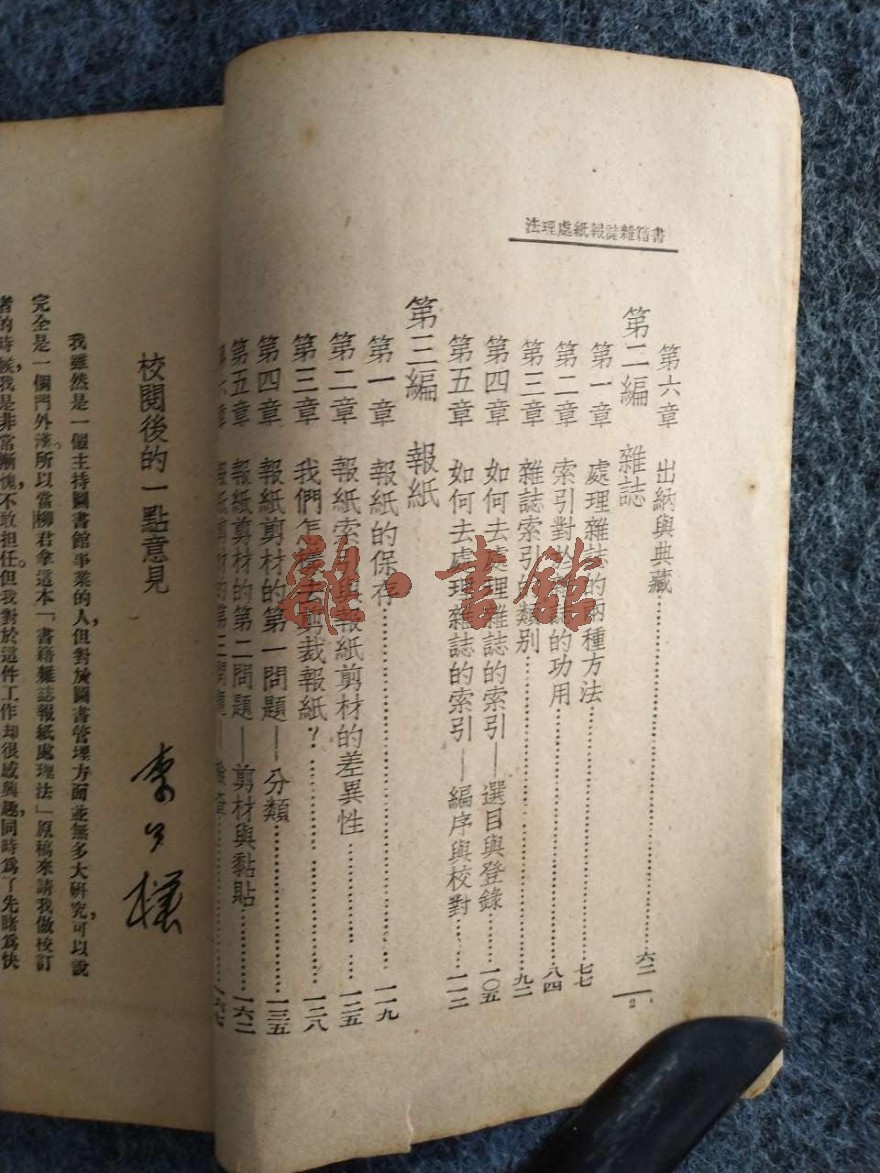 書籍雜誌報紙處理法
第六章 出納與典藏……六二
第二編 雜誌
第一章 處理雜誌的兩種方法……七七
第二章 索引對於雜誌的功用……八四
第三章 雜誌索引的類別……九二
第四章 如何去處理雜誌的索引——選目與登錄……一〇五
第五章 如何去處理雜誌的索引——編序與校對……一一二
第三編 報紙
第一章 報紙的保存……一一九
第二章 報紙索引與報紙剪材的差異性……一二五
第三章 我們怎樣去剪裁報紙？……一二八
第四章 報紙剪材的第一問題——分類……一三五
第五章 報紙剪材的第二問題——剪材與黏貼……一六二
第六章 報紙剪材的第三問題——……一六七
2
校閱後的一點意見
李公樸
我雖然是一個主持圖書館事業的人，但對於圖書管理方面並無多大研究，可以說
完全是一個門外漢。所以當柳君拿這本「書籍雜誌報紙處理法」原稿來請我做校訂
者的時候，我是非常慚愧，不敢担任。但我對於這件工作却很感興趣，同時爲了先睹爲快
龍·書館